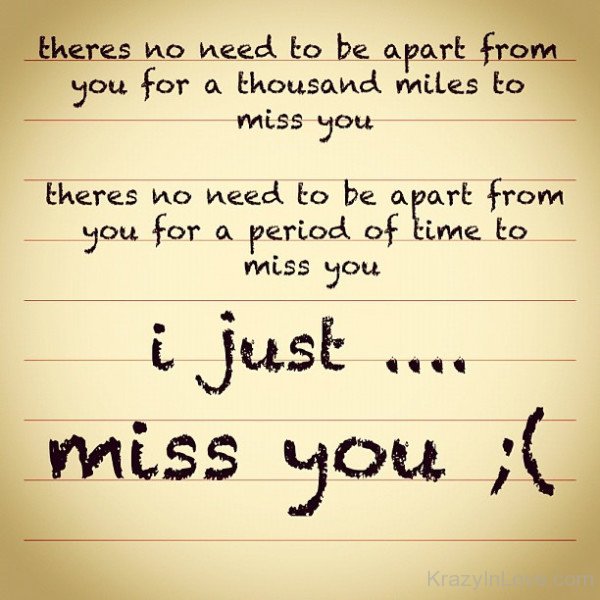 theres no need to be apart from
you for a thousand miles to
miss you
theres no need to be apart from
you for a period of time to
miss you
i just ....
miss you ;(
KrazyInLove.com